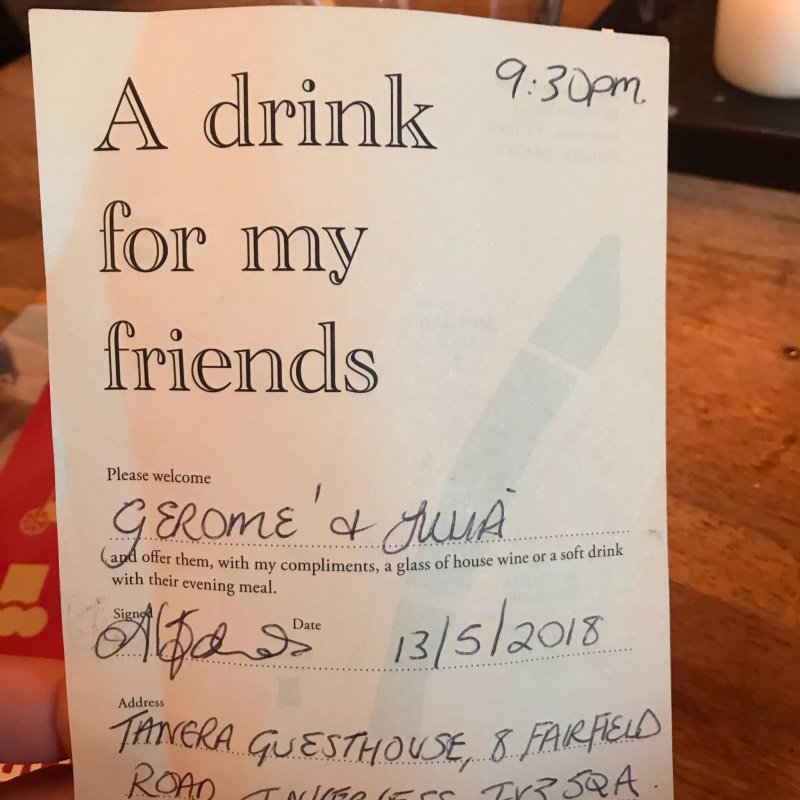 9:30pm
A drink
for my
friends
Please welcome
GEROME' & JULIA
and offer them, with my compliments, a glass of house wine or a soft drink
with their evening meal.
Signed Date 13/5/2018
Address
TANERA GUESTHOUSE, 8 FAIRFIELD
ROAD INVERNESS IV3 5QA.